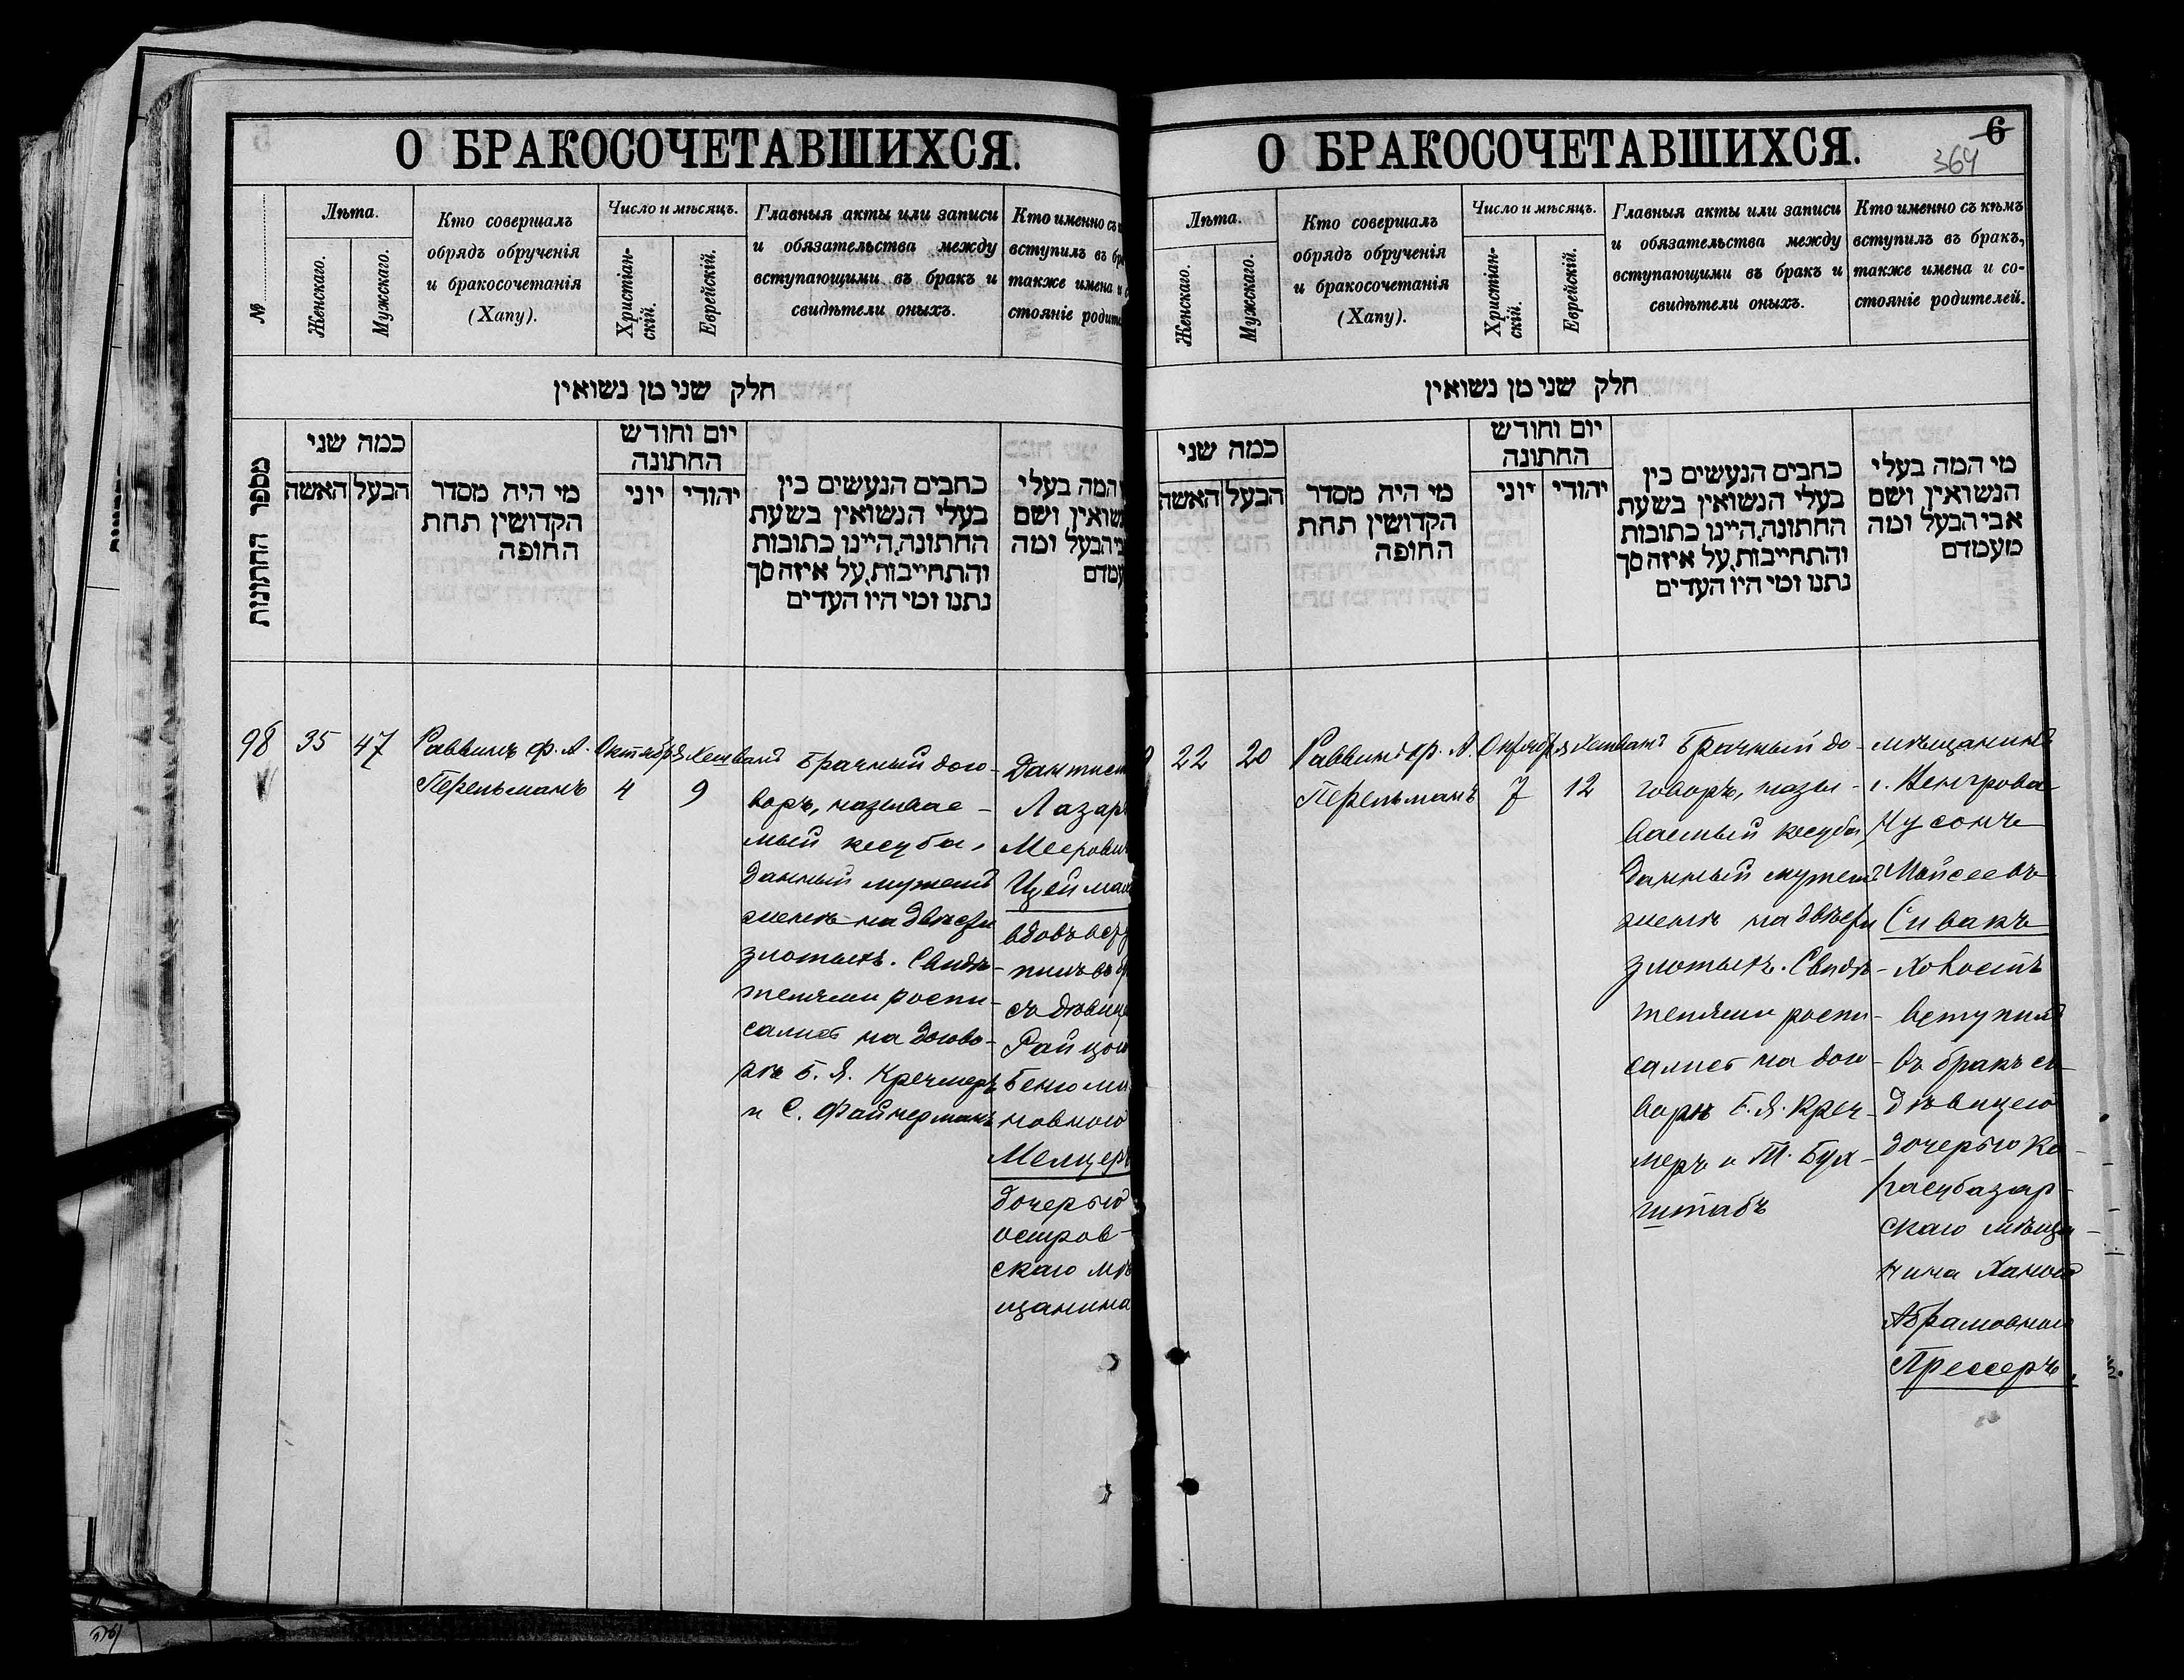 О БРАКОСОЧЕТАВШИХСЯ.
№
Лѣта.
Женскаго.
Мужскаго.
Кто совершалъ
обрядъ обрученія
и бракосочетанія
(Хапу).
Число и мѣсяцъ.
Христіан-
скій.
Еврейскій.
Главныя акты или записи
и обязательства между
вступающими въ бракъ и
свидѣтели оныхъ.
Кто именно съ
вступилъ въ бра
также имена и
стояніе родите
חלק שני מן נשואין
מספר החתונות
כמה שני
האשה
הבעל
מי היה מסדר
הקדושין תחת
החופה
יום וחודש
החתונה
יוני
יהודי
כתבים הנעשים בין
בעלי הנשואין בשעת
החתונה, היינו כתובות
והתחייבות, על איזה סך
נתנו ומי היו העדים
המה בעלי
שואין ושם
הבעל ומה
עמדם
98
35
47
Раввинъ Ф. А.
Перельманъ
Октября
4
Хешванъ
9
Брачный дого-
воръ, называе-
мый кесуба,
данный мужемъ
женѣ на двѣсти
злотыхъ. Свидѣ-
телями роспи-
сались на догово-
рѣ Б. Я. Кречмеръ
и С. Файнерманъ
Дантист
Лазарь
Мееровичъ
Цейма
вдовъ всту
пилъ въ бр
съ дѣвице
Райцою
Беньоми
новною
Мелцеръ
дочерью
остров-
скаго мѣ
щанина
О БРАКОСОЧЕТАВШИХСЯ.
6
364
Лѣта.
Женскаго.
Мужскаго.
Кто совершалъ
обрядъ обрученія
и бракосочетанія
(Хапу).
Число и мѣсяцъ.
Христіан-
скій.
Еврейскій.
Главныя акты или записи
и обязательства между
вступающими въ бракъ и
свидѣтели оныхъ.
Кто именно съ кѣмъ
вступилъ въ бракъ,
также имена и со-
стояніе родителей.
חלק שני מן נשואין
כמה שני
האשה
הבעל
מי היה מסדר
הקדושין תחת
החופה
יום וחודש
החתונה
יוני
יהודי
כתבים הנעשים בין
בעלי הנשואין בשעת
החתונה, היינו כתובות
והתחייבות, על איזה סך
נתנו ומי היו העדים
מי המה בעלי
הנשואין ושם
אבי הבעל ומה
מעמדם
22
20
Раввинъ Ф. А.
Перельманъ
Октября
7
Хешванъ
12
Брачный до-
говоръ, назы-
ваемый кесуба,
данный мужемъ
женѣ на двѣсти
злотыхъ. Свидѣ-
телями роспи-
сались на дого-
ворѣ Б. Я. Креч-
меръ и М. Бух-
штабъ
мѣщанинъ
г. Венгрова
Нусонъ
Мойсеевъ
Сивакъ
Холостъ
вступилъ
въ бракъ съ
дѣвицею
дочерью Ка-
расубазар-
скаго мѣща-
нина Ханою
Абрамовною
Прессеръ.